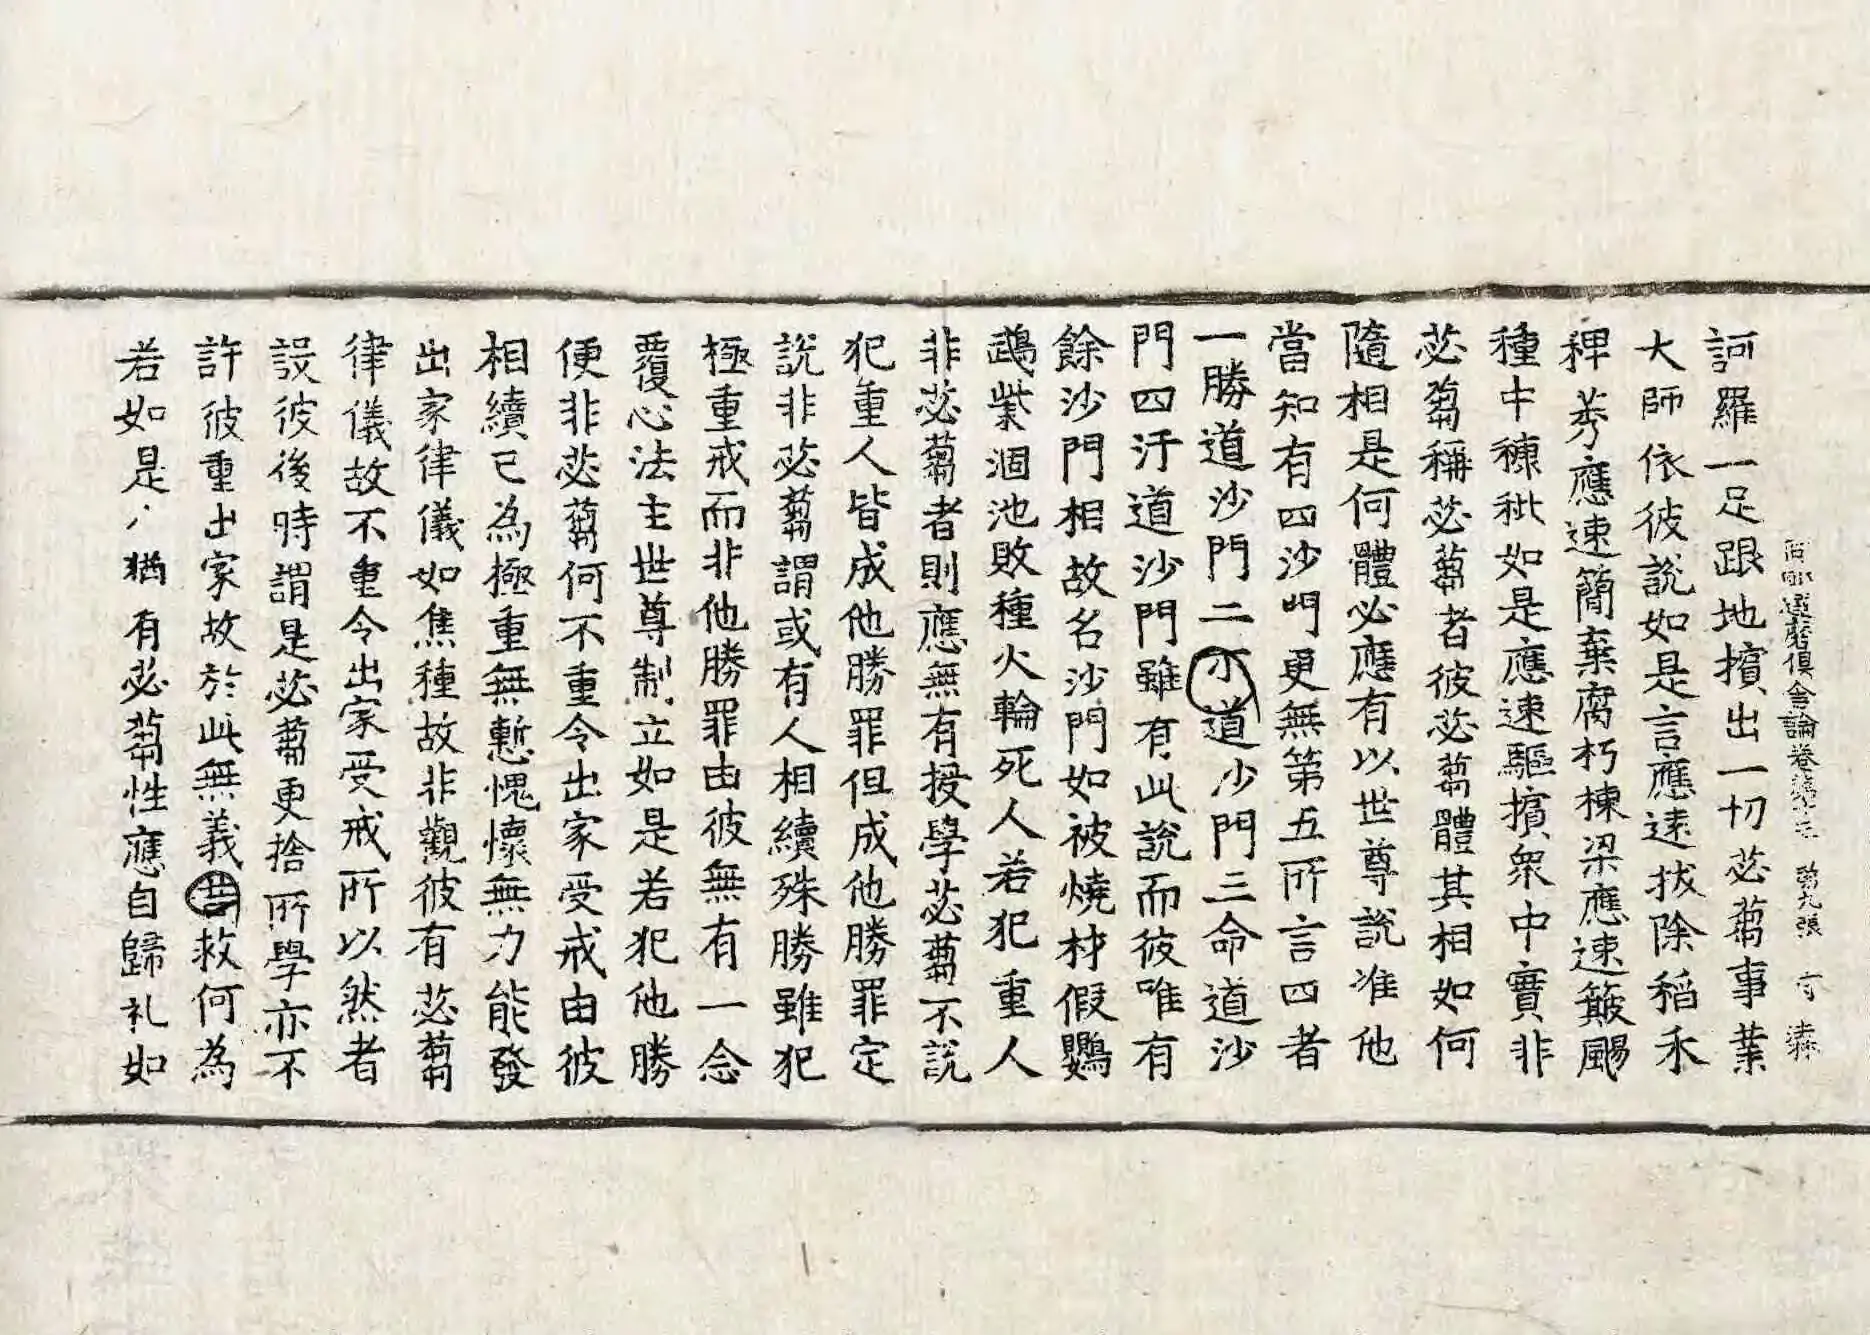 阿毗達磨俱舍論卷第十五 第九張 守
訶羅一足跟地擯出一切苾蒭事業
大師依彼說如是言應速拔除稻禾
稗莠應速簡棄腐朽棟梁應速簸颺
種中穅秕如是應速驅擯衆中實非
苾蒭稱苾蒭者彼苾蒭體其相如何
隨相是何體必應有以世尊說准他
當知有四沙門更無第五所言四者
一勝道沙門二示道沙門三命道沙
門四汙道沙門雖有此說而彼唯有
餘沙門相故名沙門如被燒材假鸚
鵡觜涸池敗種火輪死人若犯重人
非苾蒭者則應無有授學苾蒭不說
犯重人皆成他勝罪但成他勝罪定
說非苾蒭謂或有人相續殊勝雖犯
極重戒而非他勝罪由彼無有一念
覆心法主世尊制立如是若犯他勝
便非苾蒭何不重令出家受戒由彼
相續已為極重無慙愧懷無力能發
出家律儀如焦種故非觀彼有苾蒭
律儀故不重令出家受戒所以然者
設彼後時謂是苾蒭更捨所學亦不
許彼重出家故於此無義苦救何為
若如是人猶有苾蒭性應自歸礼如